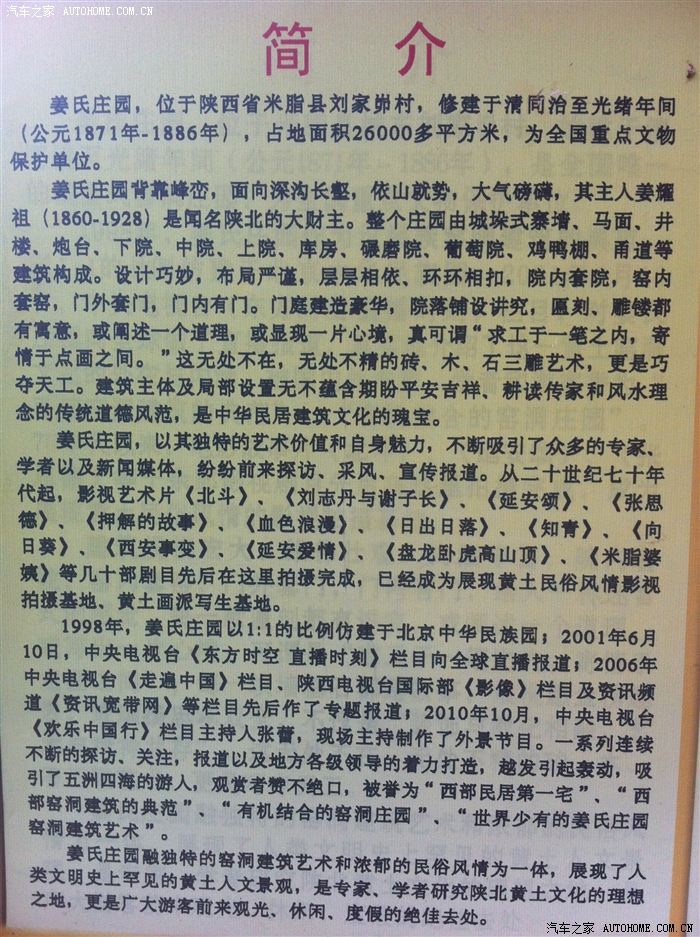 汽车之家 AUTOHOME.COM.CN
简 介
姜氏庄园，位于陕西省米脂县刘家峁村，修建于清同治至光绪年间
（公元1871年-1886年），占地面积26000多平方米，为全国重点文物
保护单位。
姜氏庄园背靠峰峦，面向深沟长壑，依山就势，大气磅礴，其主人姜耀
祖（1860-1928）是闻名陕北的大财主。整个庄园由城垛式寨墙、马面、井
楼、炮台、下院、中院、上院、库房、碾磨院、葡萄院、鸡鸭棚、甬道等
建筑构成。设计巧妙，布局严谨，层层相依、环环相扣，院内套院，窑内
套窑，门外套门，门内有门。门庭建造豪华，院落铺设讲究，匾刻、雕镂都
有寓意，或阐述一个道理，或显现一片心境，真可谓“求工于一笔之内，寄
情于点画之间。”这无处不在，无处不精的砖、木、石三雕艺术，更是巧
夺天工。建筑主体及局部设置无不蕴含期盼平安吉祥、耕读传家和风水理
念的传统道德风范，是中华民居建筑文化的瑰宝。
姜氏庄园，以其独特的艺术价值和自身魅力，不断吸引了众多的专家、
学者以及新闻媒体，纷纷前来探访、采风、宣传报道。从二十世纪七十年
代起，影视艺术片《北斗》、《刘志丹与谢子长》、《延安颂》、《张思
德》、《押解的故事》、《血色浪漫》、《日出日落》、《知青》、《向
日葵》、《西安事变》、《延安爱情》、《盘龙卧虎高山顶》、《米脂婆
姨》等几十部剧目先后在这里拍摄完成，已经成为展现黄土民俗风情影视
拍摄基地、黄土画派写生基地。
1998年，姜氏庄园以1:1的比例仿建于北京中华民族园；2001年6月
10日，中央电视台《东方时空 直播时刻》栏目向全球直播报道；2006年
中央电视台《走遍中国》栏目、陕西电视台国际部《影像》栏目及资讯频
道《资讯宽带网》等栏目先后作了专题报道；2010年10月，中央电视台
《欢乐中国行》栏目主持人张蕾，现场主持制作了外景节目。一系列连续
不断的探访、关注，报道以及地方各级领导的着力打造，越发引起轰动，吸
引了五洲四海的游人，观赏者赞不绝口，被誉为“西部民居第一宅”、“西
部窑洞建筑的典范”、“有机结合的窑洞庄园”、“世界少有的姜氏庄园
窑洞建筑艺术”。
姜氏庄园融独特的窑洞建筑艺术和浓郁的民俗风情为一体，展现了人
类文明史上罕见的黄土人文景观，是专家、学者研究陕北黄土文化的理想
之地，更是广大游客前来观光、休闲、度假的绝佳去处。
汽车之家 AUTOHOME.COM.CN